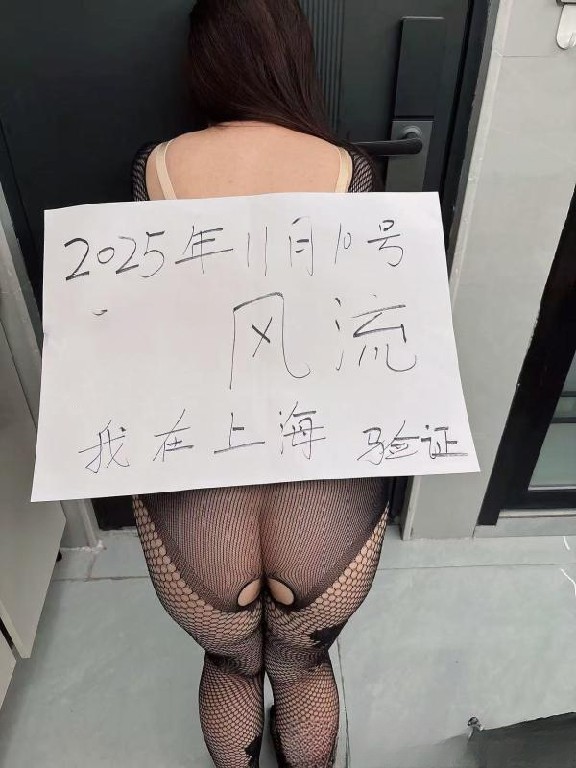 2025年11月10号
风流
我在上海 验证